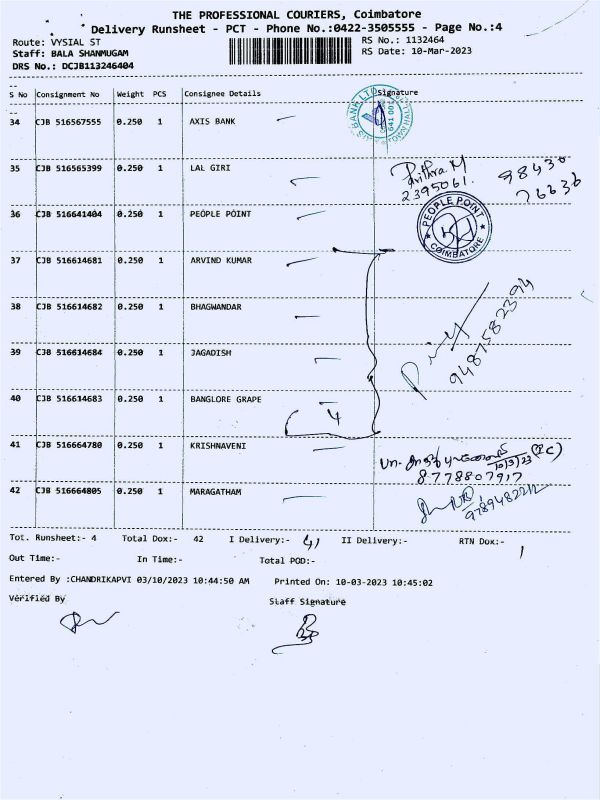 THE PROFESSIONAL COURIERS, Coimbatore
Delivery Runsheet - PCT - Phone No.:0422-3505555 - Page No.:4
Route: VYSIAL ST
RS No.: 1132464
Staff: BALA SHANMUGAM
RS Date: 10-Mar-2023
DRS No.: DCJB113246404
S No Consignment No Weight PCS Consignee Details Signature
34 CJB 516567555 0.250 1 AXIS BANK
BANK LTD
641 001
TOWN HALL
35 CJB 516565399 0.250 1 LAL GIRI
Pavithra.M
2395061.
98430
76636
36 CJB 516641404 0.250 1 PEOPLE POINT
PEOPLE POINT
COIMBATORE
37 CJB 516614681 0.250 1 ARVIND KUMAR
38 CJB 516614682 0.250 1 BHAGWANDAR
39 CJB 516614684 0.250 1 JAGADISH
9487582394
40 CJB 516614683 0.250 1 BANGLORE GRAPE
4
41 CJB 516664780 0.250 1 KRISHNAVENI
10/3/23
8778807917
42 CJB 516664805 0.250 1 MARAGATHAM
Tot. Runsheet:- 4 Total Dox:- 42 I Delivery:- 41 II Delivery:- RTN Dox:- 1
Out Time:- In Time:- Total POD:-
Entered By :CHANDRIKAPVI 03/10/2023 10:44:50 AM Printed On: 10-03-2023 10:45:02
Verified By Staff Signature